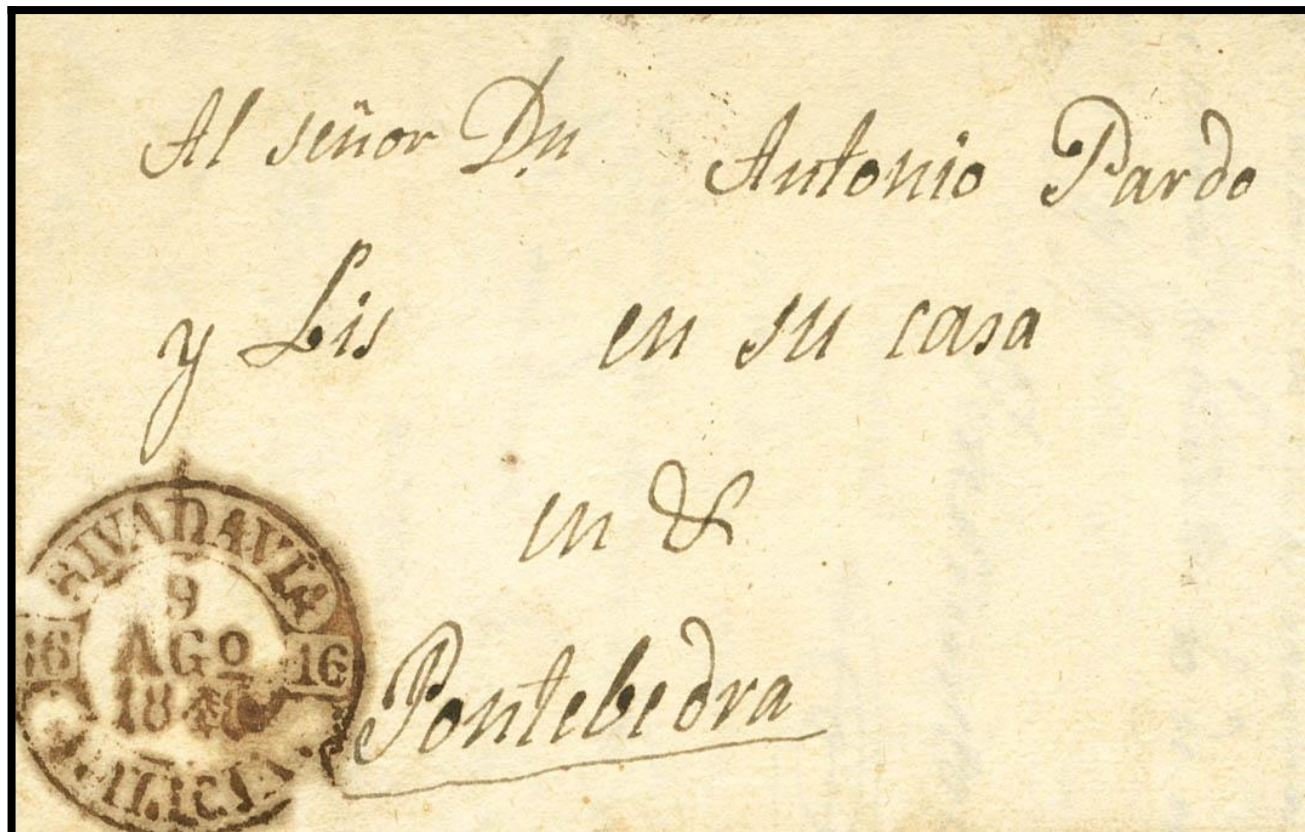 Al señor Dn Antonio Pardo
y Lis en su casa
en &
Pontebedra
RIVADAVIA
9
AGO
16 16